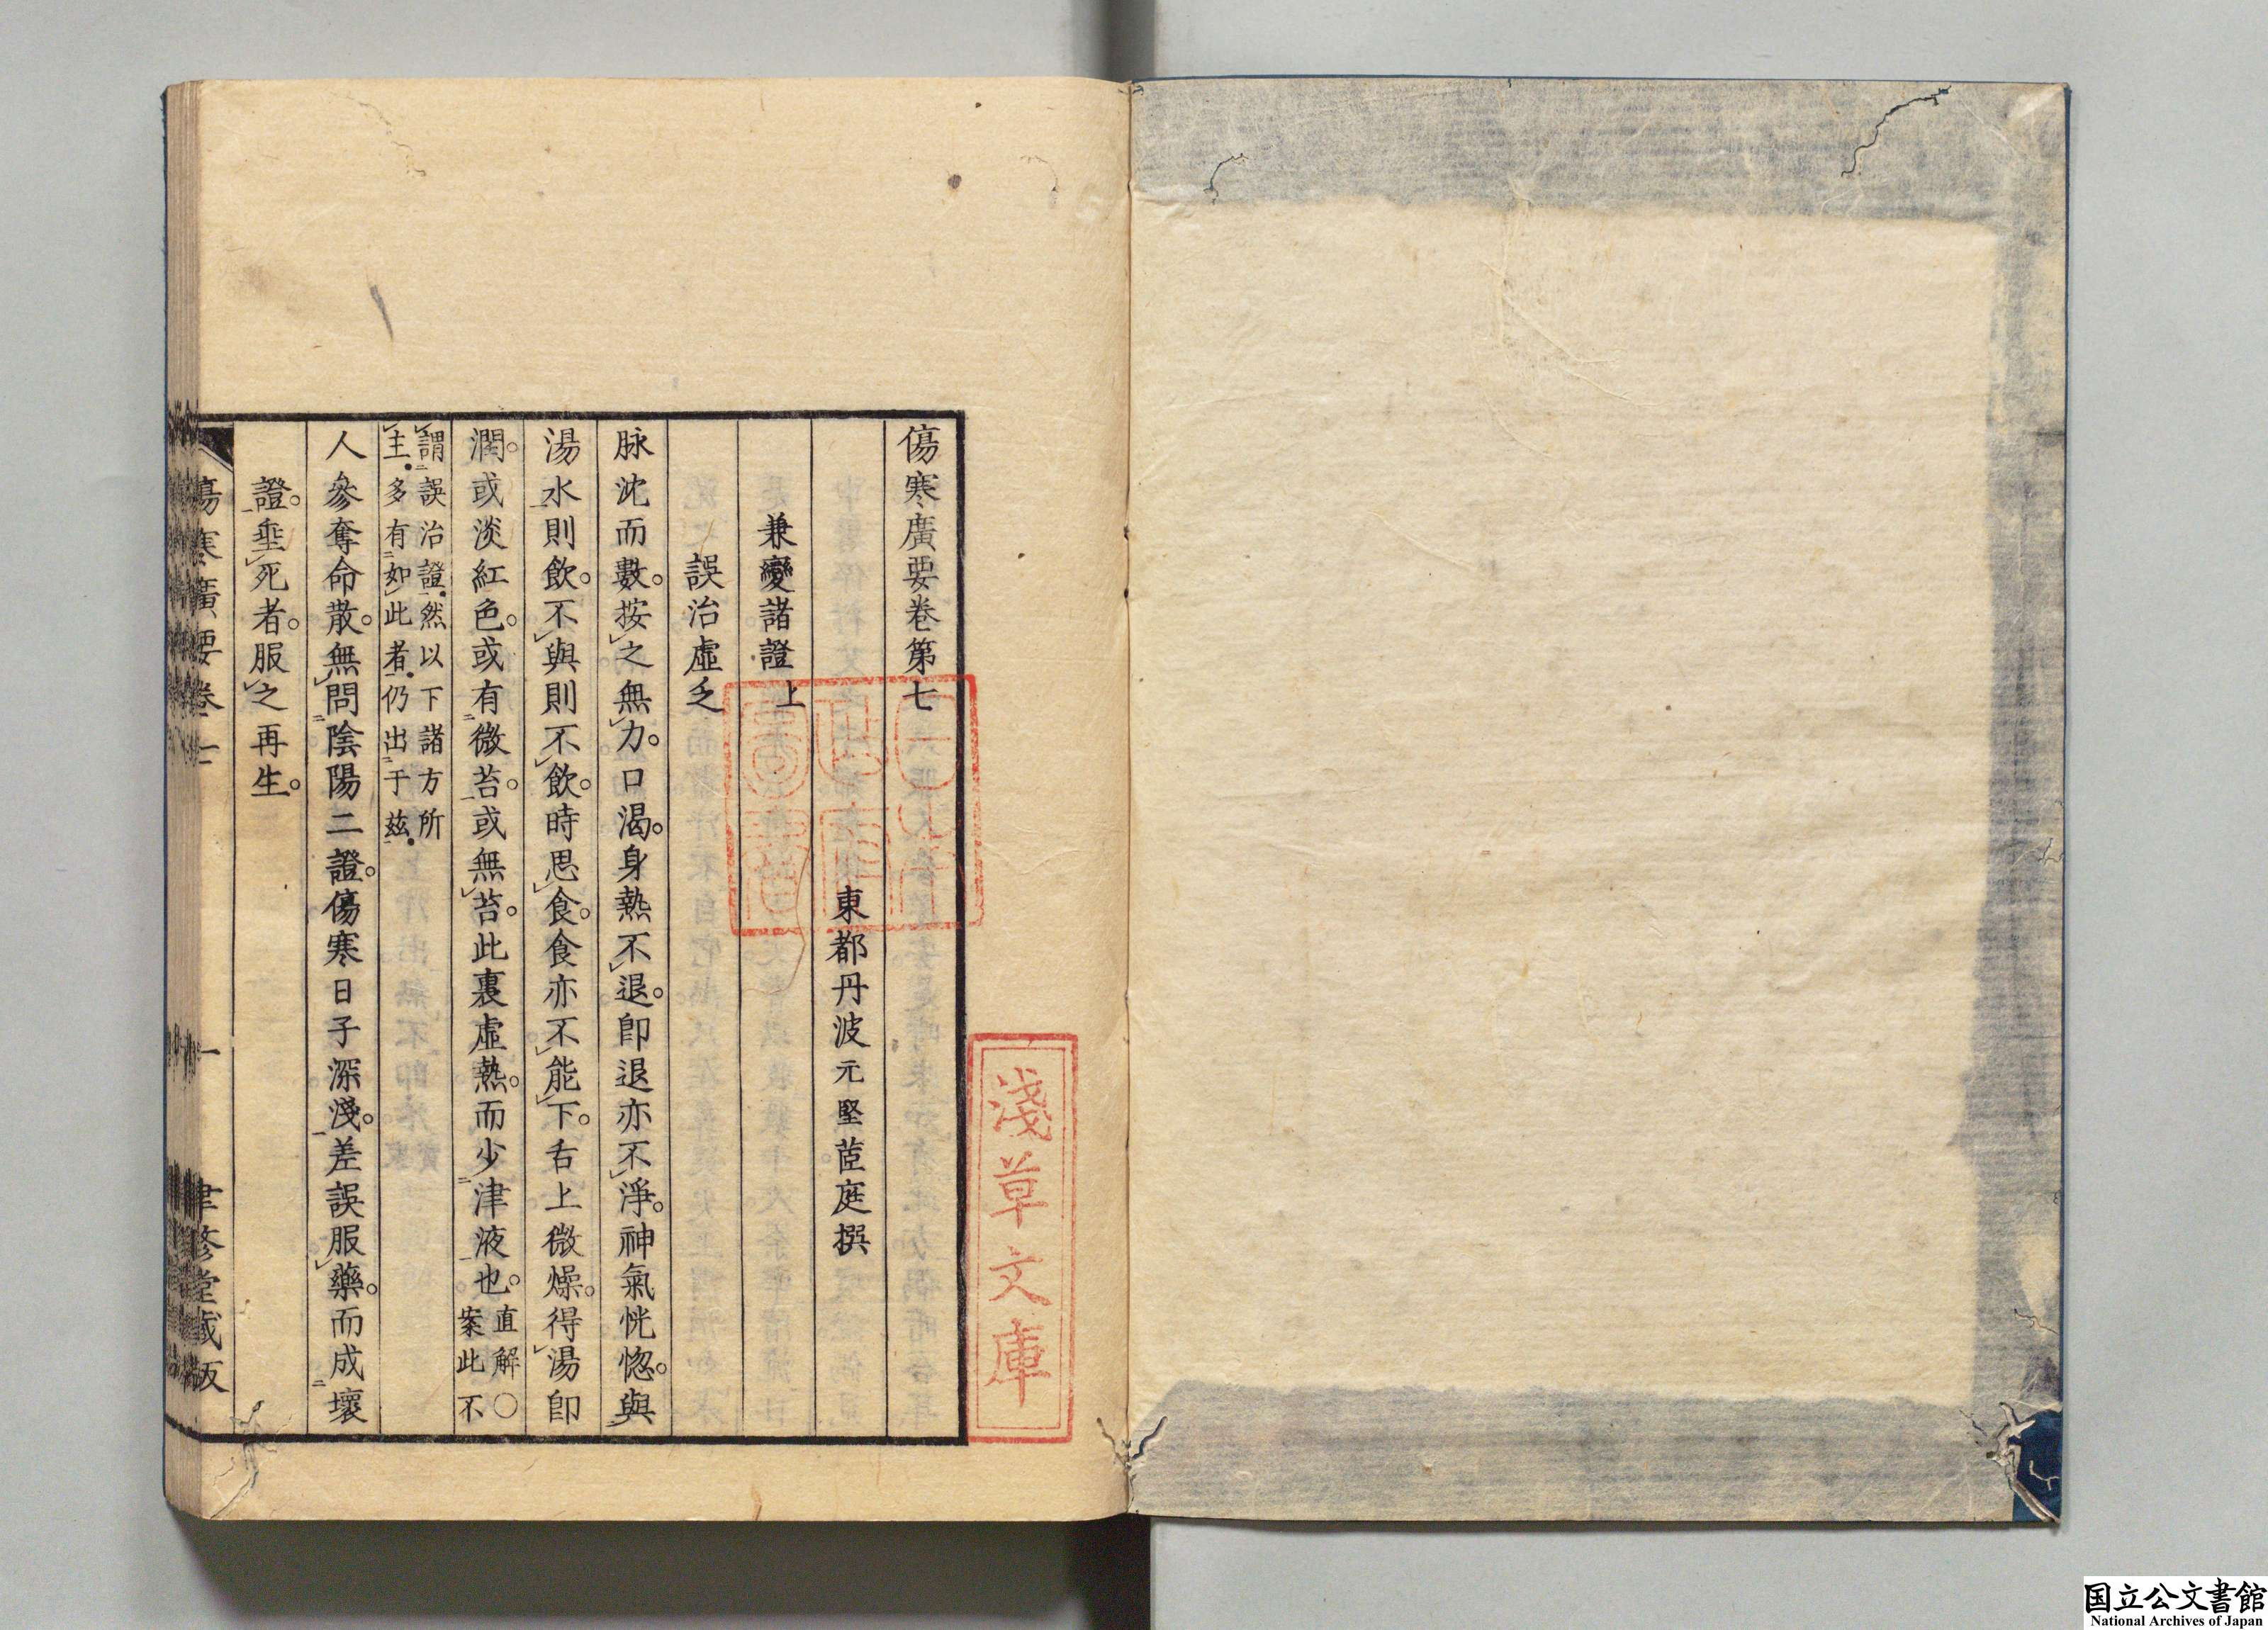 傷寒廣要卷第七
東都丹波元堅茝庭撰
兼變諸證上
誤治虛乏
脉沈而數。按之無力。口渴。身熱不退。卽退亦不淨。神氣恍惚。與
湯水則飲。不與則不飲。時思食。食亦不能下。舌上微燥。得湯卽
潤。或淡紅色。或有微苔。或無苔。此裏虛熱。而少津液也。直解〇案此不
謂誤治證。然以下諸方所主。多有如此者。仍出于玆。
人參奪命散。無問陰陽二證。傷寒日子深淺。差誤服藥。而成壞
證。垂死者。服之再生。
傷寒廣要卷七 一 聿修堂藏版
淺草文庫
国立公文書館
National Archives of Japan